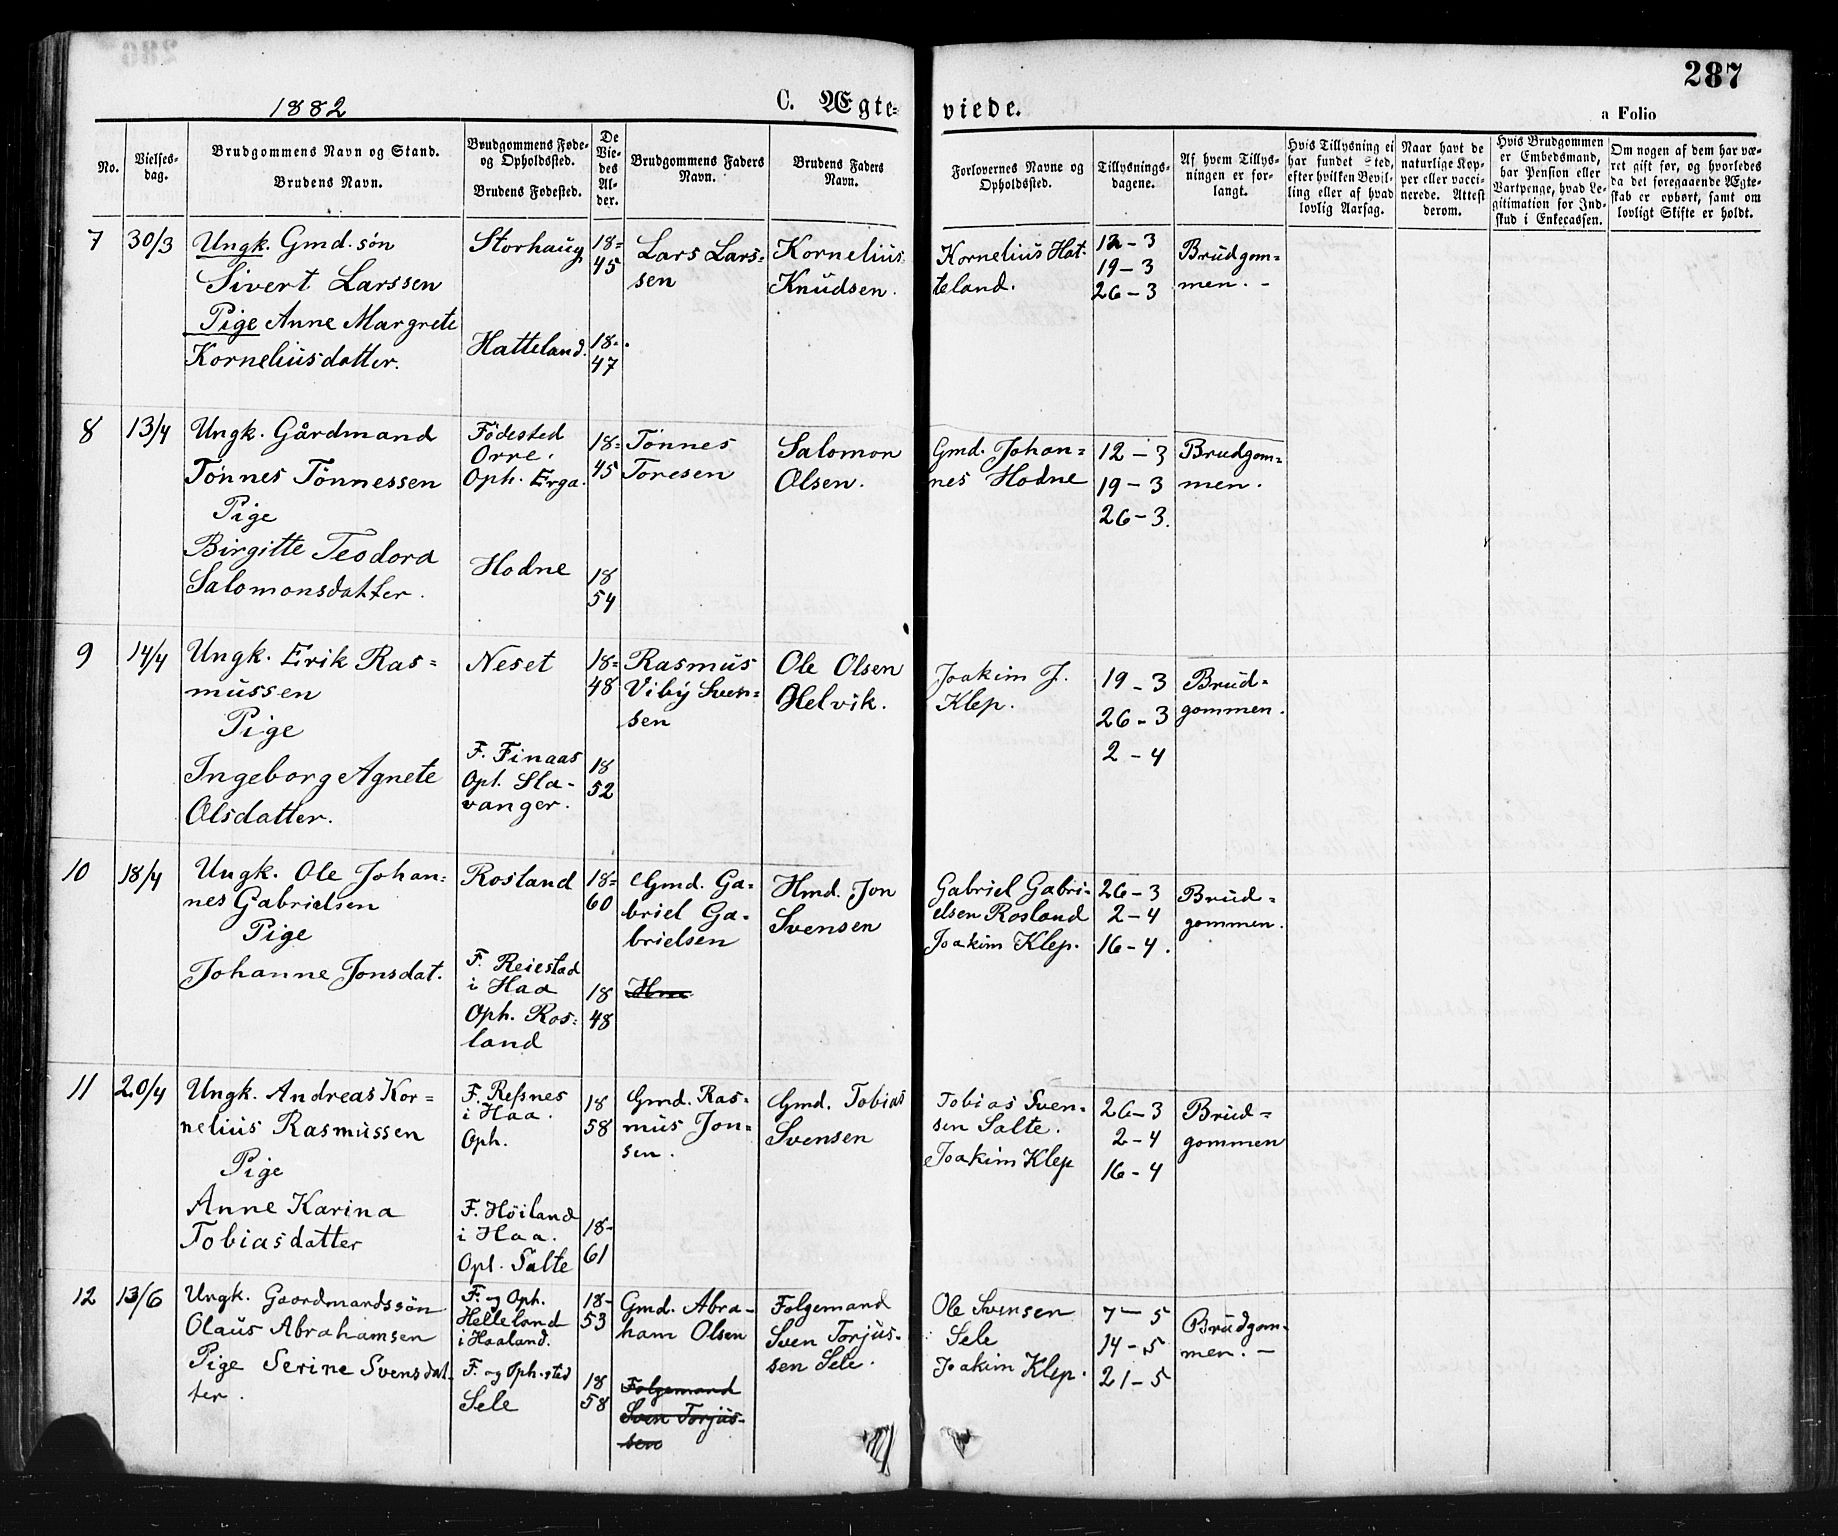 287
1882
C. Ægteviede.
a Folio
No.
Vielsesdag.
Brudgommens Navn og Stand.
Brudens Navn.
Brudgommens Føde- og Opholdssted.
Brudens Fødested.
De Viedes Alder.
Brudgommens Faders Navn.
Brudens Faders Navn.
Forlovernes Navne og Opholdssted.
Tillysningsdagene.
Af hvem Tillysningen er forlangt.
Hvis Tillysning ei har fundet Sted, efter hvilken Bevilling eller af hvad lovlig Aarsag.
Naar havt de naturlige Kopper eller vaccinerede. Attest derom.
Hvis Brudgommen er Embedsmand, har Pension eller Vartpenge, hvad Legitimation for Indskud i Enkecassen.
Om nogen af dem har været gift før, og hvorledes da det foregaaende Ægteskab er ophørt, samt om lovligt Skifte er holdt.
7
30/3
Ungk. Gmd. søn
Sivert Larssen
Pige Anne Margrete
Korneliusdatter.
Storhaug
Hatteland.
18=
45
18-
47
Lars Lars=
sen
Kornelius
Knudsen.
Kornelius Hat-
teland.
12-3
19-3
26-3
Brudgom=
men. -
8
13/4
Ungk. Gårdmand
Tönnes Tönnessen
Pige
Birgitte Teodora
Salomonsdatter.
Födested
Orre.
Oph. Erga.
Hodne
18=
45
18
54
Tönnes
Toresen
Salomon
Olsen.
Gmd. Johan=
nes Hodne
12-3
19-3
26-3.
Brudgom=
men.
9
14/4
Ungk. Erik Ras=
mussen
Pige
Ingeborg Agnete
Olsdatter.
Neset
F. Finaas
Opl. Sta-
vanger.
18=
48
18
52
Rasmus
Viby Sven=
sen
Ole Olsen
Helvik.
Joakim J.
Klep.
19-3
26-3
2-4
Brud=
gommen.
10
18/4
Ungk. Ole Johan=
nes Gabrielsen
Pige
Johanne Jonsdat.
Rosland
F. Reiestad
i Haa
Oph. Ros=
land
18=
60
18
48
Gmd. Ga-
briel Ga-
brielsen
Hmd. Jon
Svensen
Gabriel Gabri-
elsen Rosland
Joakim Klep.
26-3
2-4
16-4.
Brud=
gommen.
11
20/4
Ungk. Andreas Kor=
nelius Rasmussen
Pige
Anne Karina
Tobiasdatter
F. Refsnes
i Haa.
Oph.
F. Höiland
i Haa.
Opl. Salte
18
58
18-
61
Gmd. Ras-
mus Jon=
sen.
Gmd. Tobias
Svensen
Tobias Sven-
sen Salte.
Joakim Klep
26-3
2-4
16-4
Brud=
gommen
12
13/6
Ungk. Gaardmandssön
Olaus Abrahamsen
Pige Serine Svensdat-
ter.
F. og Oph.
Helleland
i Haaland.
F. og Oph.sted
Sele
18-
53
18
58
Gmd. Abra-
ham Olsen
Folgemand
Sven Torjus-
sen
Folgemand
Sven Torjus-
sen Sele.
Ole Svensen
Sele
Joakim Klep.
7-5
14-5
21-5
Brudgom-
men. -